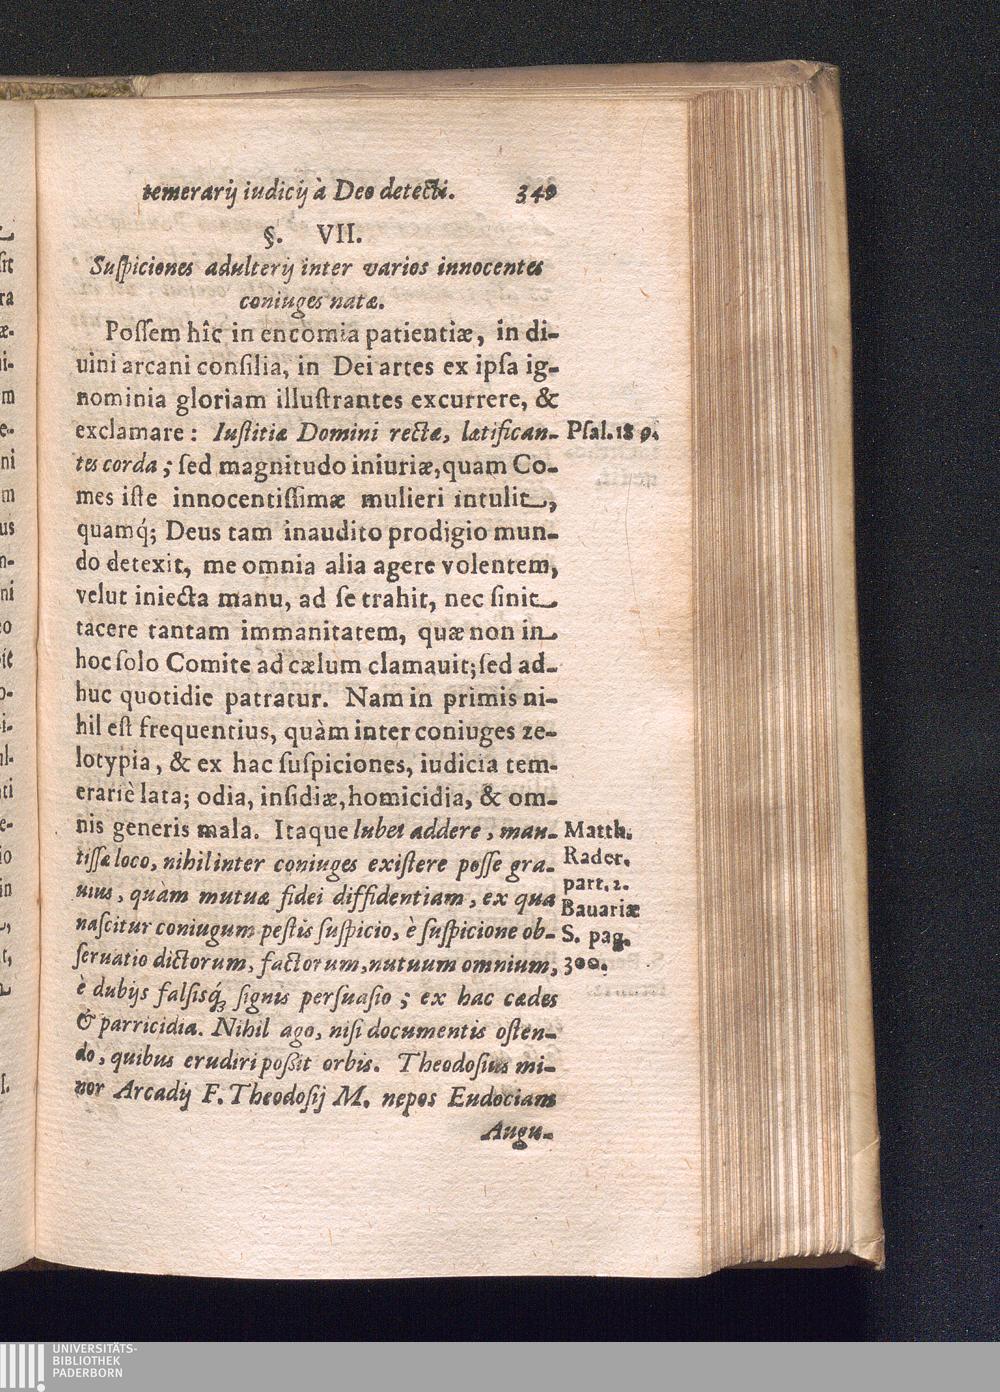 temerarij iudicij à Deo detecti. 349
§. VII.
Suſpiciones adulterij inter varios innocentes
coniuges natæ.
Poſſem hîc in encomia patientiæ, in di-
uini arcani conſilia, in Dei artes ex ipſa ig-
nominia gloriam illuſtrantes excurrere, &
exclamare: Iuſtitiæ Domini rectæ, lætifican- Pſal. 18 9.
tes corda; ſed magnitudo iniuriæ, quam Co-
mes iſte innocentiſſimæ mulieri intulit,
quamq́; Deus tam inaudito prodigio mun-
do detexit, me omnia alia agere volentem,
velut iniecta manu, ad ſe trahit, nec ſinit
tacere tantam immanitatem, quæ non in
hoc ſolo Comite ad cælum clamauit; ſed ad-
huc quotidie patratur. Nam in primis ni-
hil eſt frequentius, quàm inter coniuges ze-
lotypia, & ex hac ſuſpiciones, iudicia tem-
erariè lata; odia, inſidiæ, homicidia, & om-
nis generis mala. Itaque lubet addere, man- Matth.
tiſſæ loco, nihil inter coniuges exiſtere poſſe gra- Rader.
uius, quàm mutuæ fidei diffidentiam, ex qua part. 2.
Bauariæ
naſcitur coniugum peſtis ſuſpicio, è ſuſpicione ob- S. pag.
ſeruatio dictorum, factorum, nutuum omnium, 300.
è dubijs falſisq́; ſignis perſuaſio; ex hac cædes
& parricidia. Nihil ago, niſi documentis oſten-
do, quibus erudiri poßit orbis. Theodoſius mi-
nor Arcadij F. Theodoſij M. nepos Eudociam
Augu-
UNIVERSITÄTS-
BIBLIOTHEK
PADERBORN